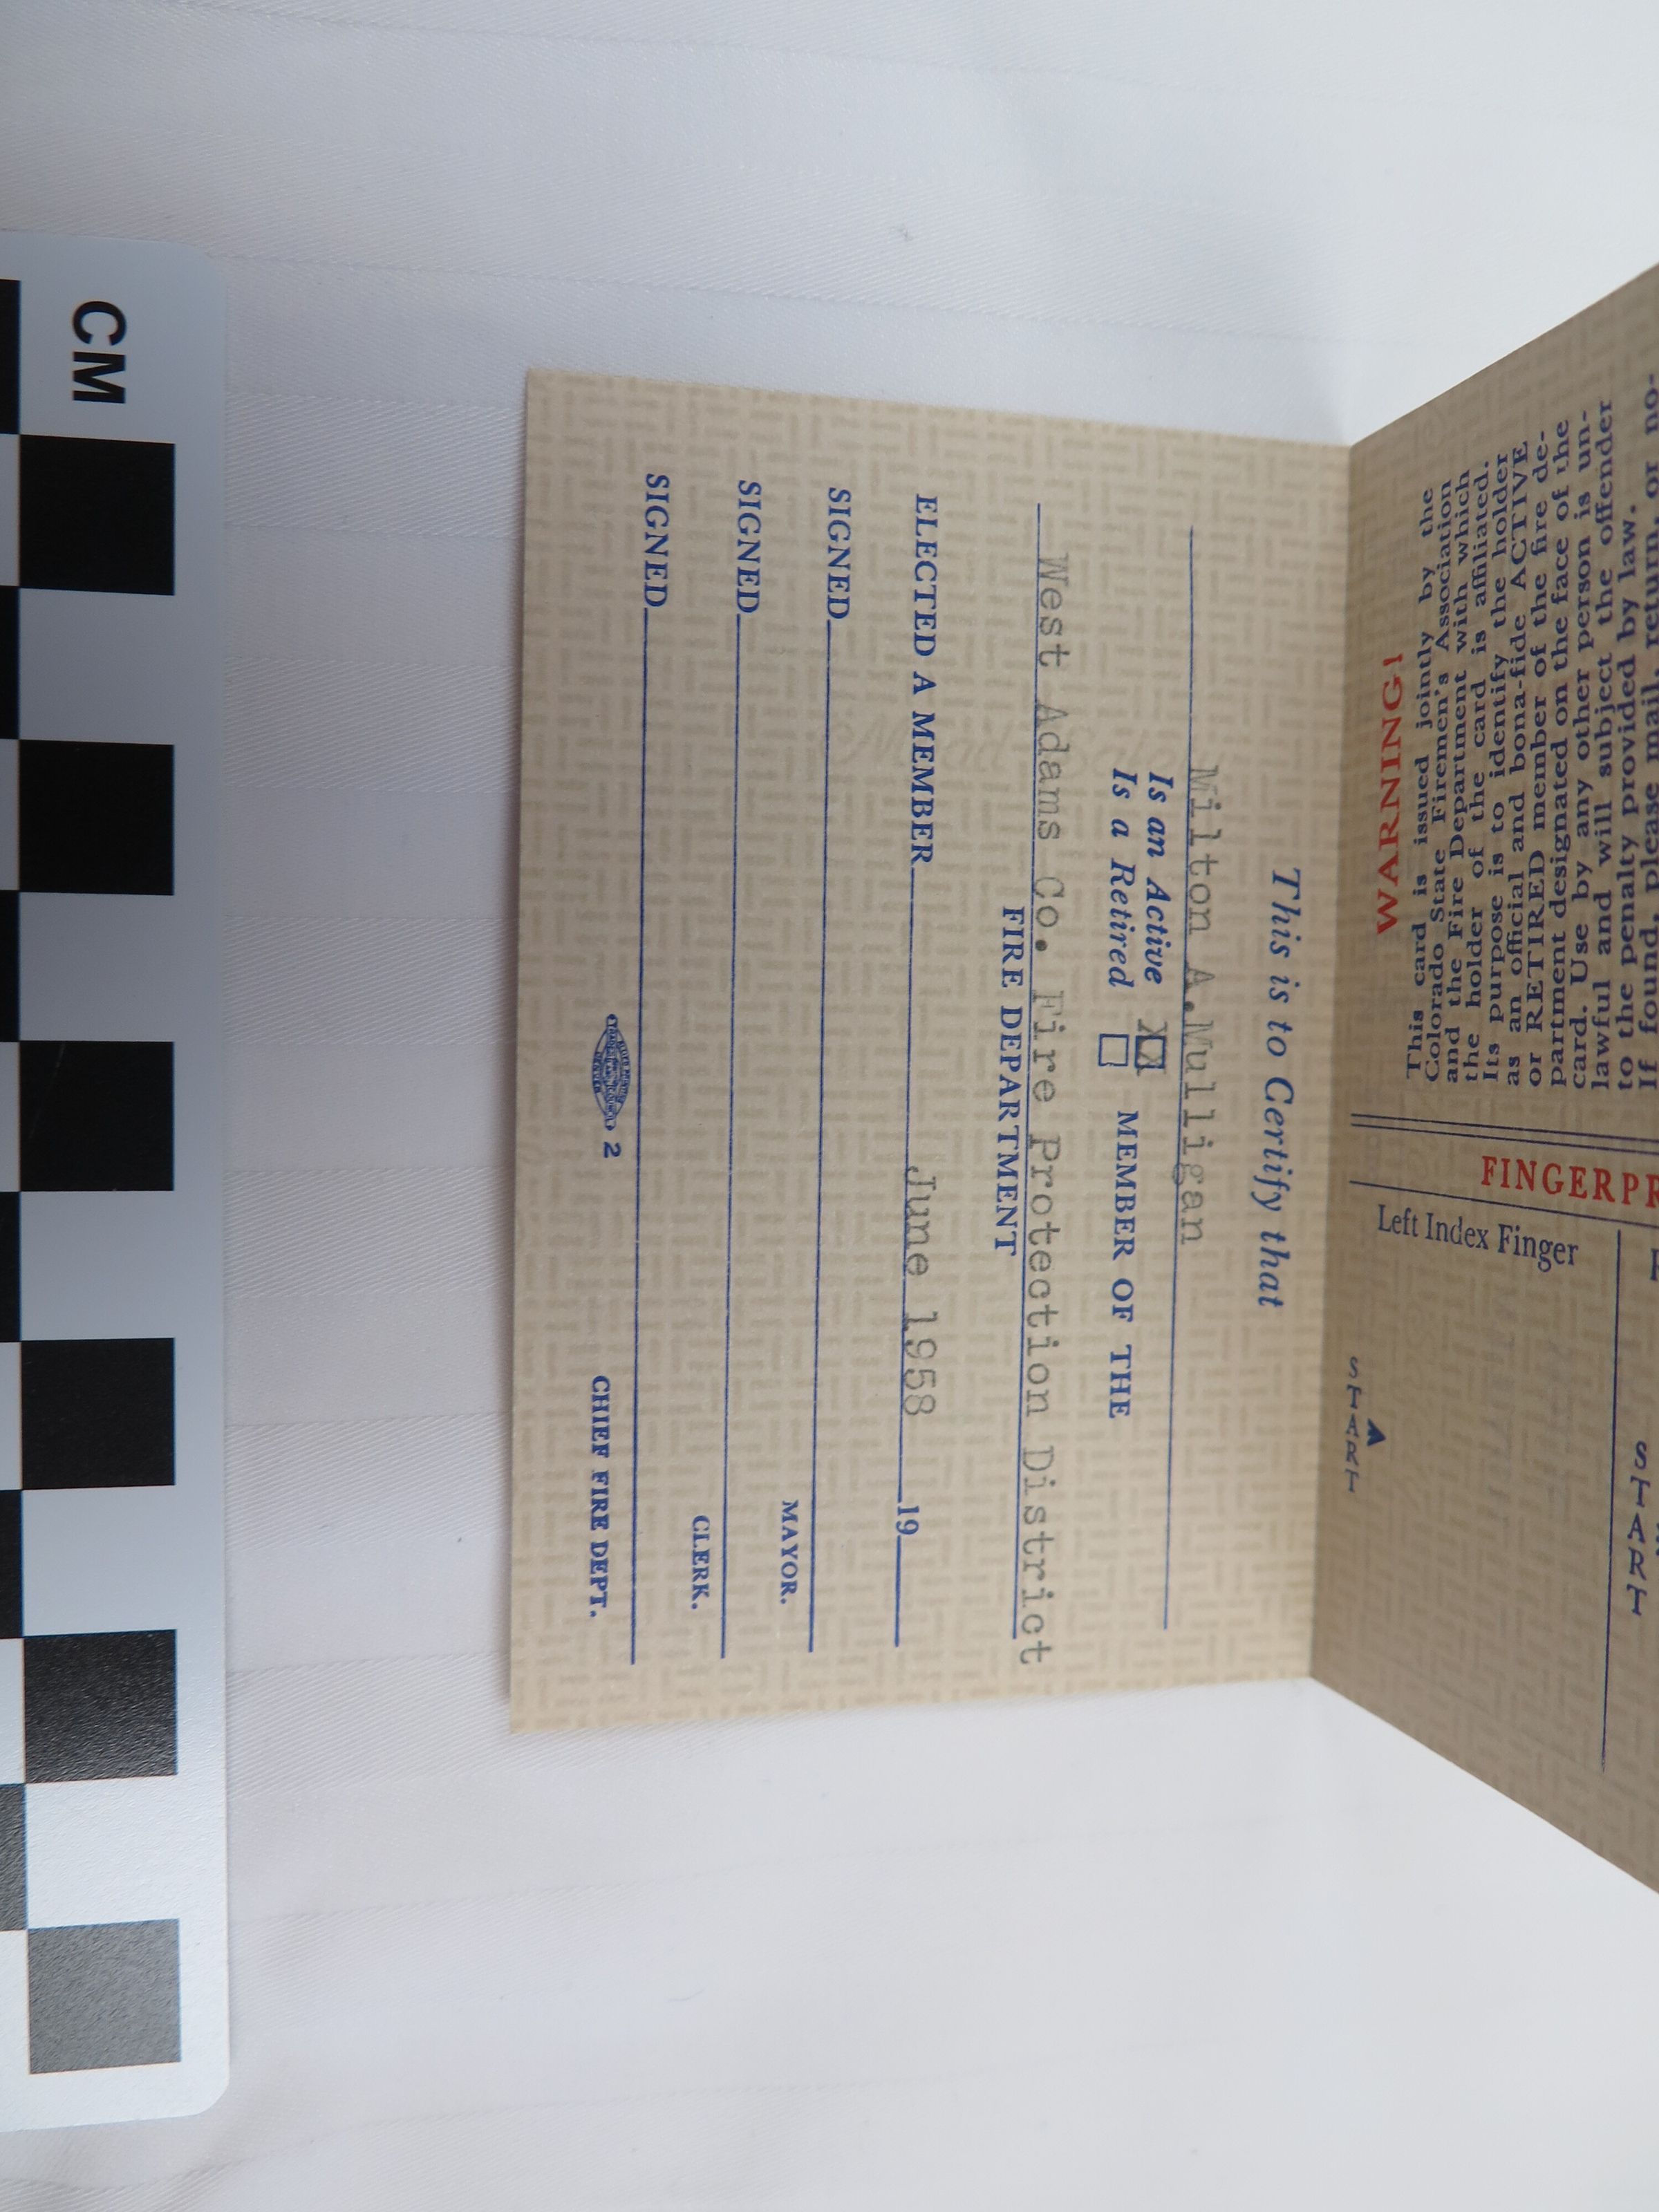 CM
This is to Certify that
Milton A.Mulligan
Is an Active XX MEMBER OF THE
Is a Retired
West Adams Co. Fire Protection District
FIRE DEPARTMENT
ELECTED A MEMBER June 1958 19
SIGNED
MAYOR.
SIGNED
CLERK.
SIGNED
2
CHIEF FIRE DEPT.
WARNING!
This card is issued jointly by the
Colorado State Firemen's Association
and the Fire Department with which
the holder of the card is affiliated.
Its purpose is to identify the holder
as an official and bona-fide ACTIVE
or RETIRED member of the fire de-
partment designated on the face of the
card. Use by any other person is un-
lawful and will subject the offender
to the penalty provided by law.
If found, please mail, return, or no-
FINGERPR
Left Index Finger
START
START